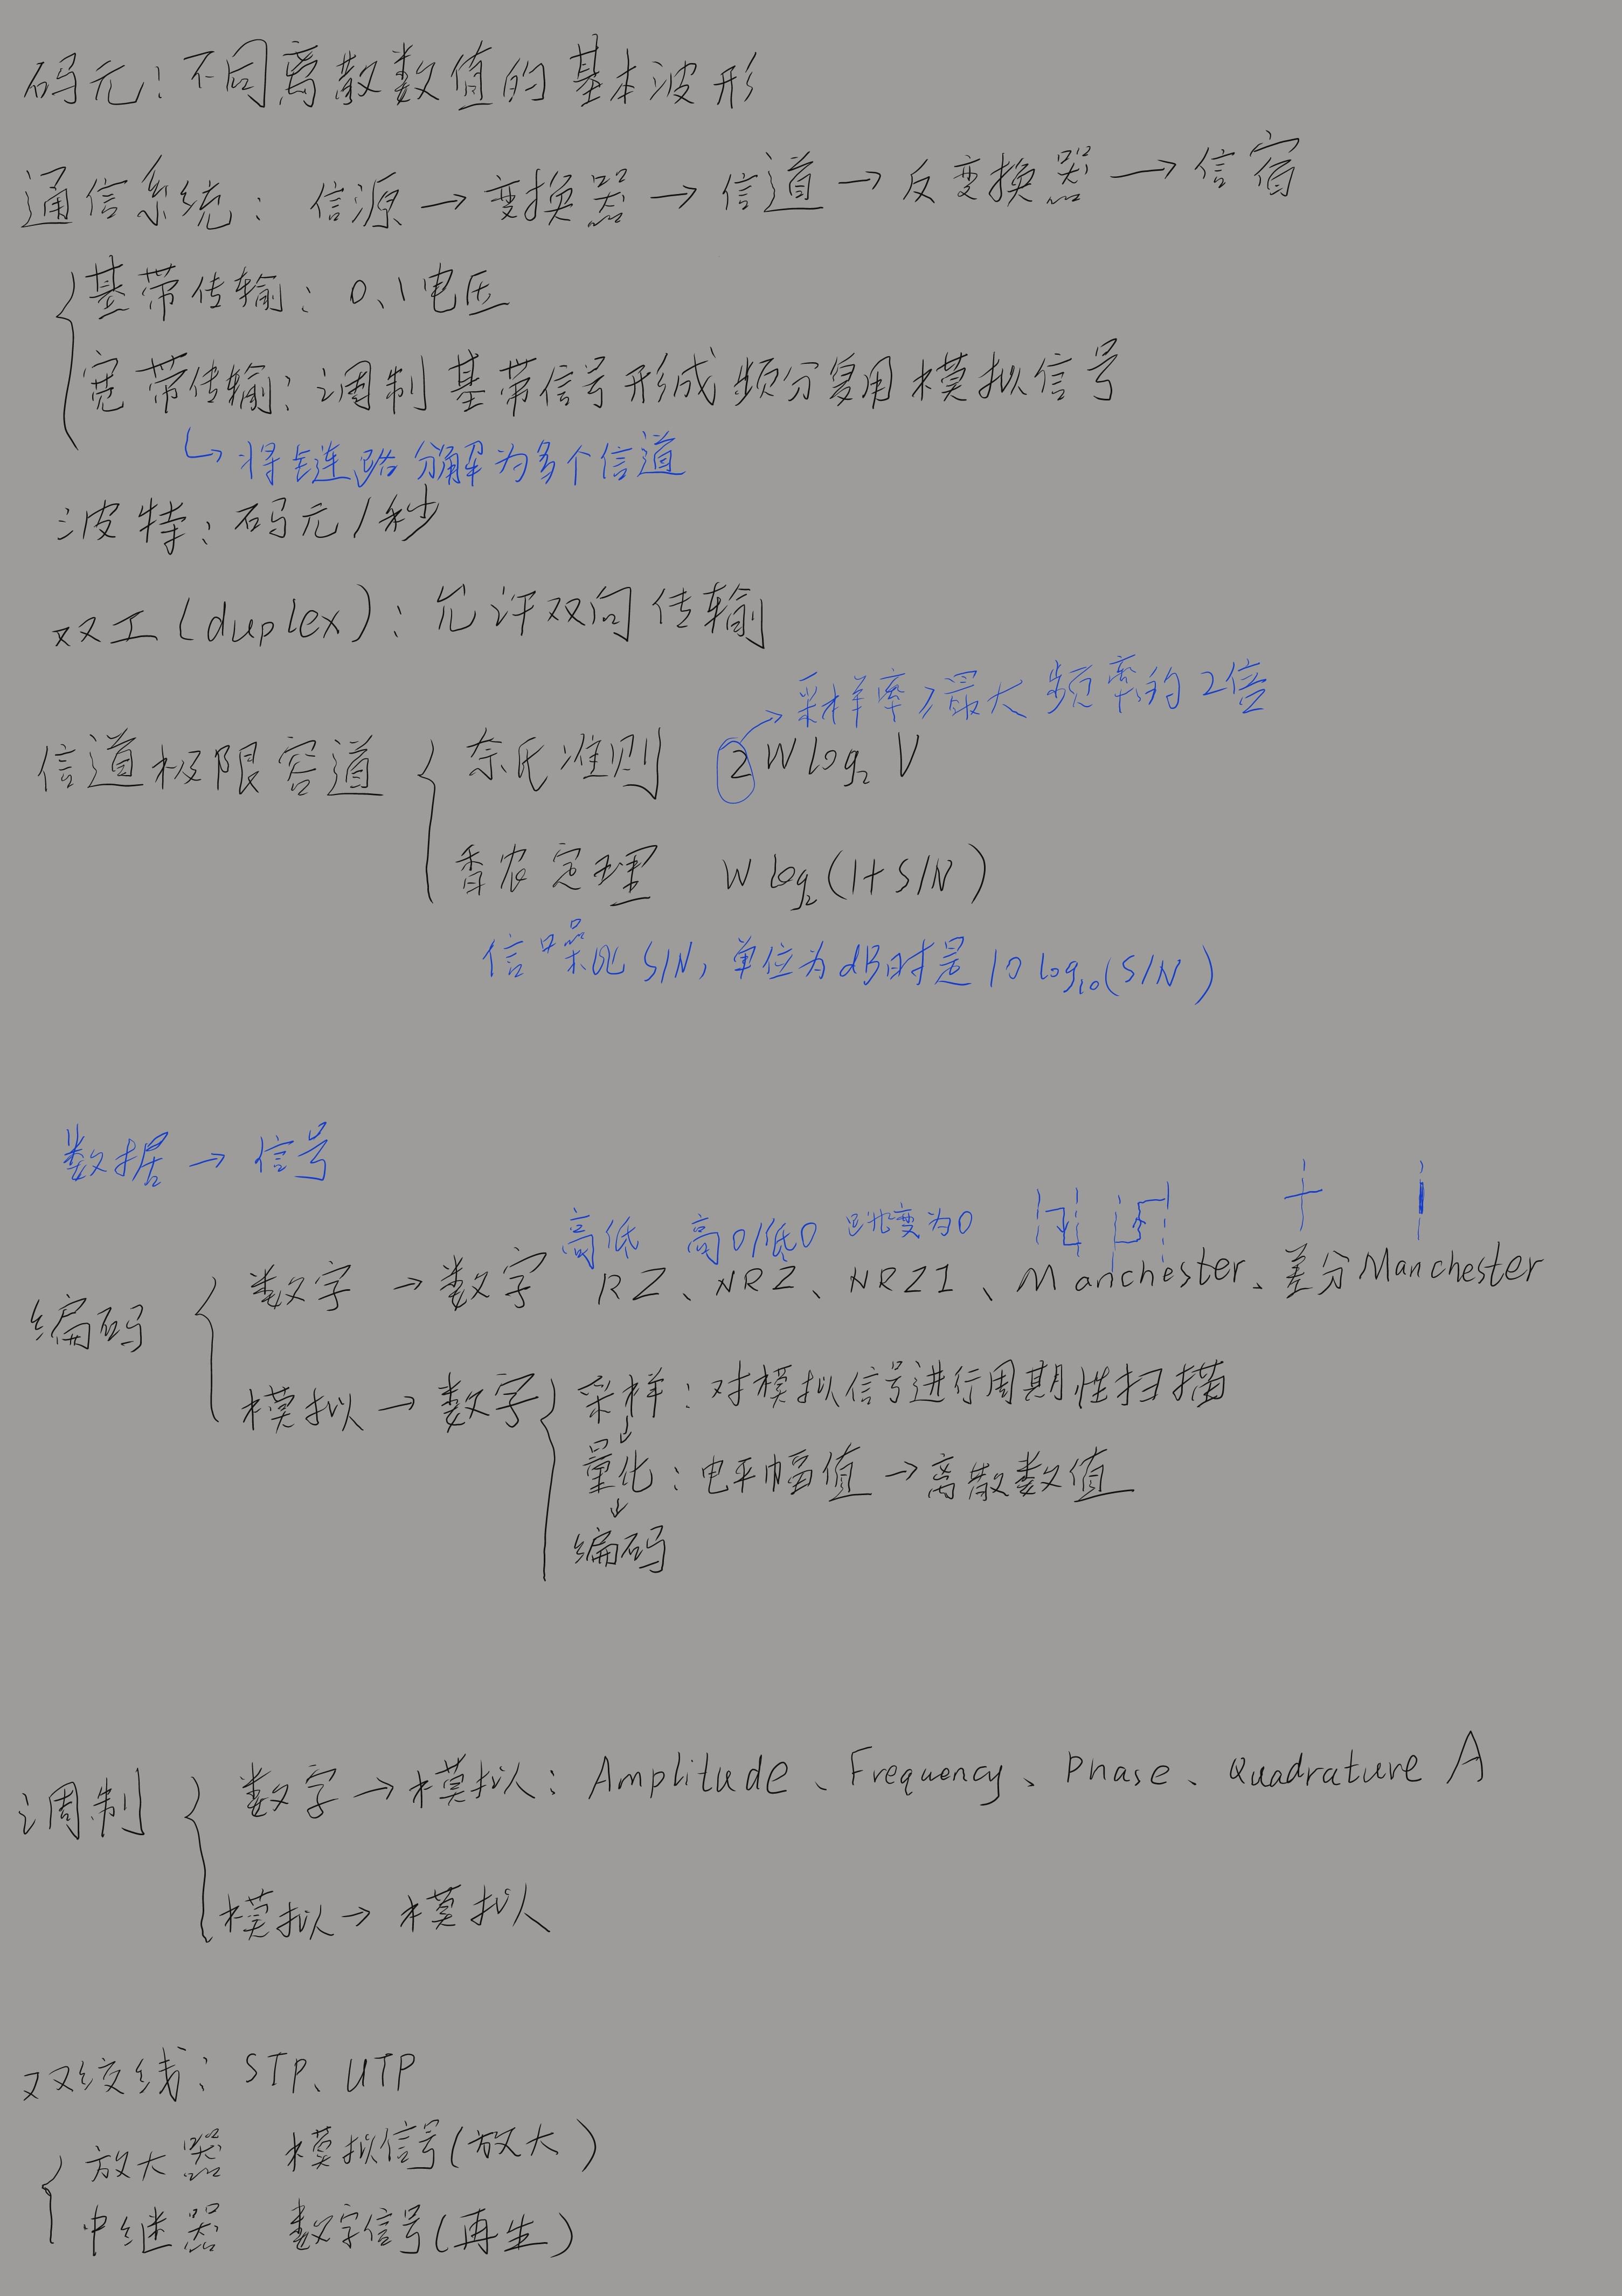 码元：不同离散数值的基本波形
通信系统：信源→变换器→信道→反变换器→信宿
基带传输：0、1电压
宽带传输：调制基带信号形成频分复用模拟信号
↳将链路分解为多个信道
波特：码元/秒
双工(duplex)：允许双向传输
→采样率≥最大频率的2倍
信道极限容道
奈氏准则 2Wlog₂V
香农定理 Wlog₂(1+S/N)
信噪比S/N，单位为dB时是10log₁₀(S/N)
数据→信号
高低 高0/低0 跳变为0
编码
数字→数字 RZ、NRZ、NRZI、Manchester、差分Manchester
模拟→数字
采样：对模拟信号进行周期性扫描
↓
量化：电平幅值→离散数值
↓
编码
调制
数字→模拟：Amplitude、Frequency、Phase、Quadrature A
模拟→模拟
双绞线：STP、UTP
放大器 模拟信号(放大)
中继器 数字信号(再生)